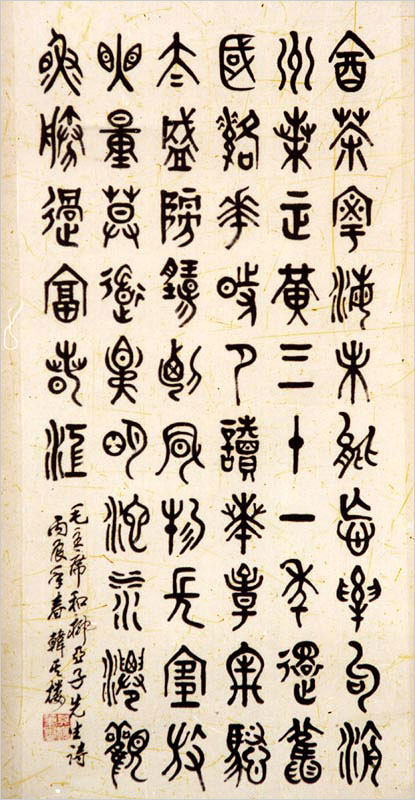 飲茶粵海未能忘索句渝
州葉正黃三十一年還舊
國落花時節讀華章牢騷
太盛防腸斷風物長宜放
眼量莫道昆明池水淺觀
魚勝過富春江
毛主席和柳亞子先生詩
丙辰年春韓